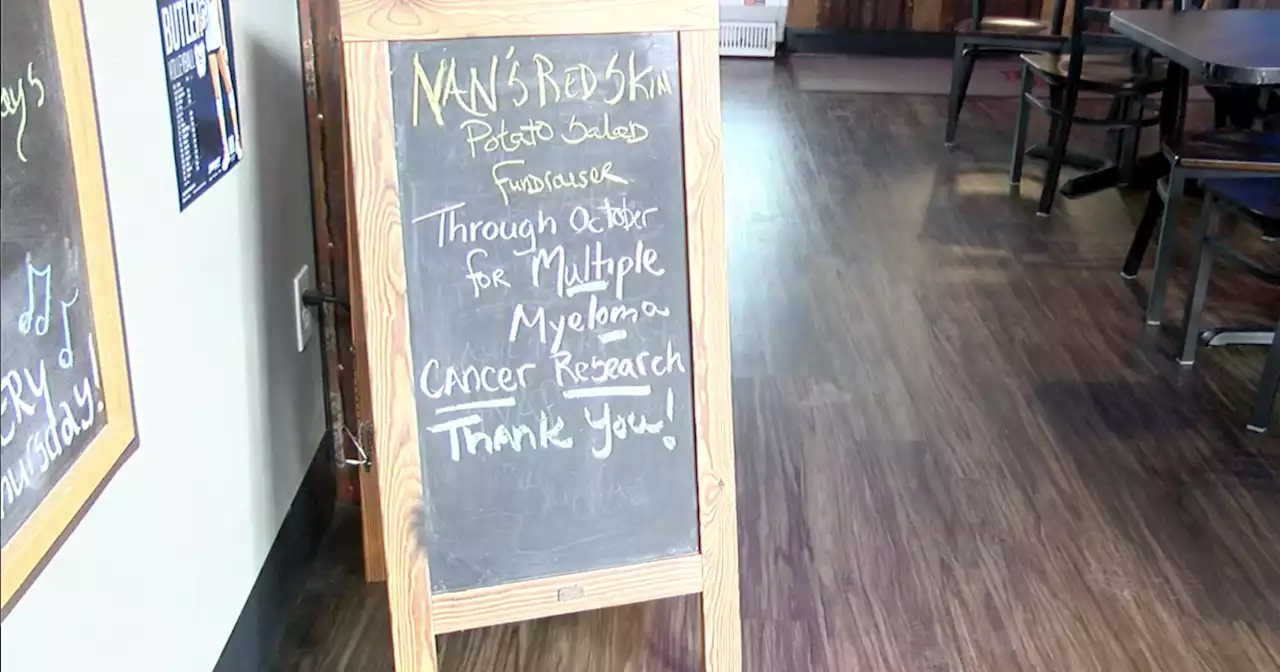 ays
ERY
hursday!
BUTLER
VOLLEYBALL
NAN'S RED SKIN
Potato Salad
Fundraiser
Through October
for Multiple
Myeloma
Cancer Research
Thank You!